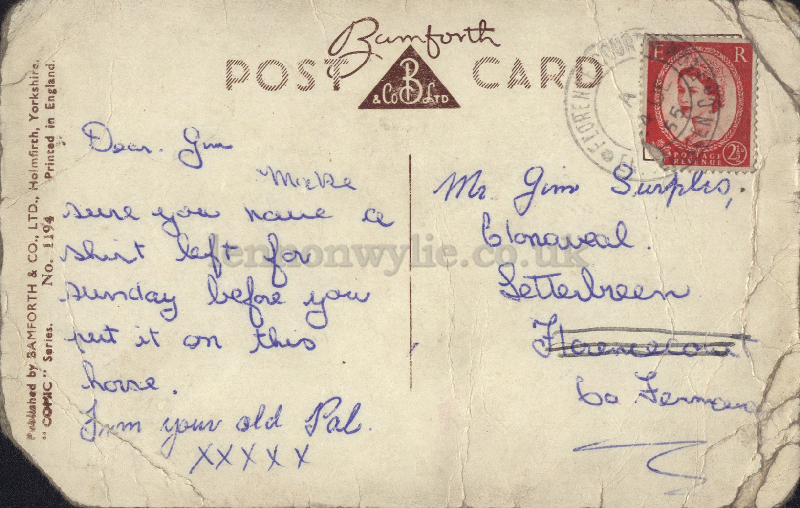 Bamforth
POST CARD
B
& Co LTD
Published by BAMFORTH & CO., LTD., Holmfirth, Yorkshire.
"COMIC" Series. No. 1194 Printed in England.
E R
POSTAGE
REVENUE
2½D
Dear. Jim
Make
sure you have a
shirt left for
sunday before you
put it on this
horse.
From your old Pal.
XXXXX
Mr Jim Surples,
Clonaveal.
Letterbreen
Florencecourt
Co Fermana
lennonwylie.co.uk